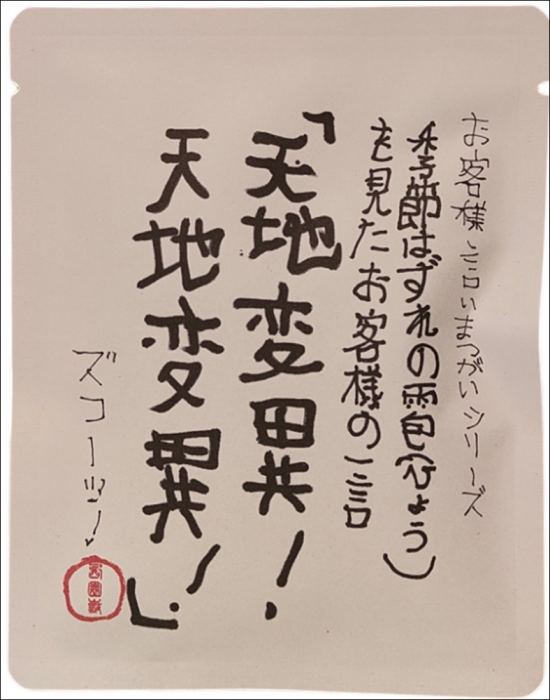 お客様言いまつがいシリーズ
季節はずれの雹(ひょう)
を見たお客様の一言
「天地変異！
天地変異！」
ズコーッ！